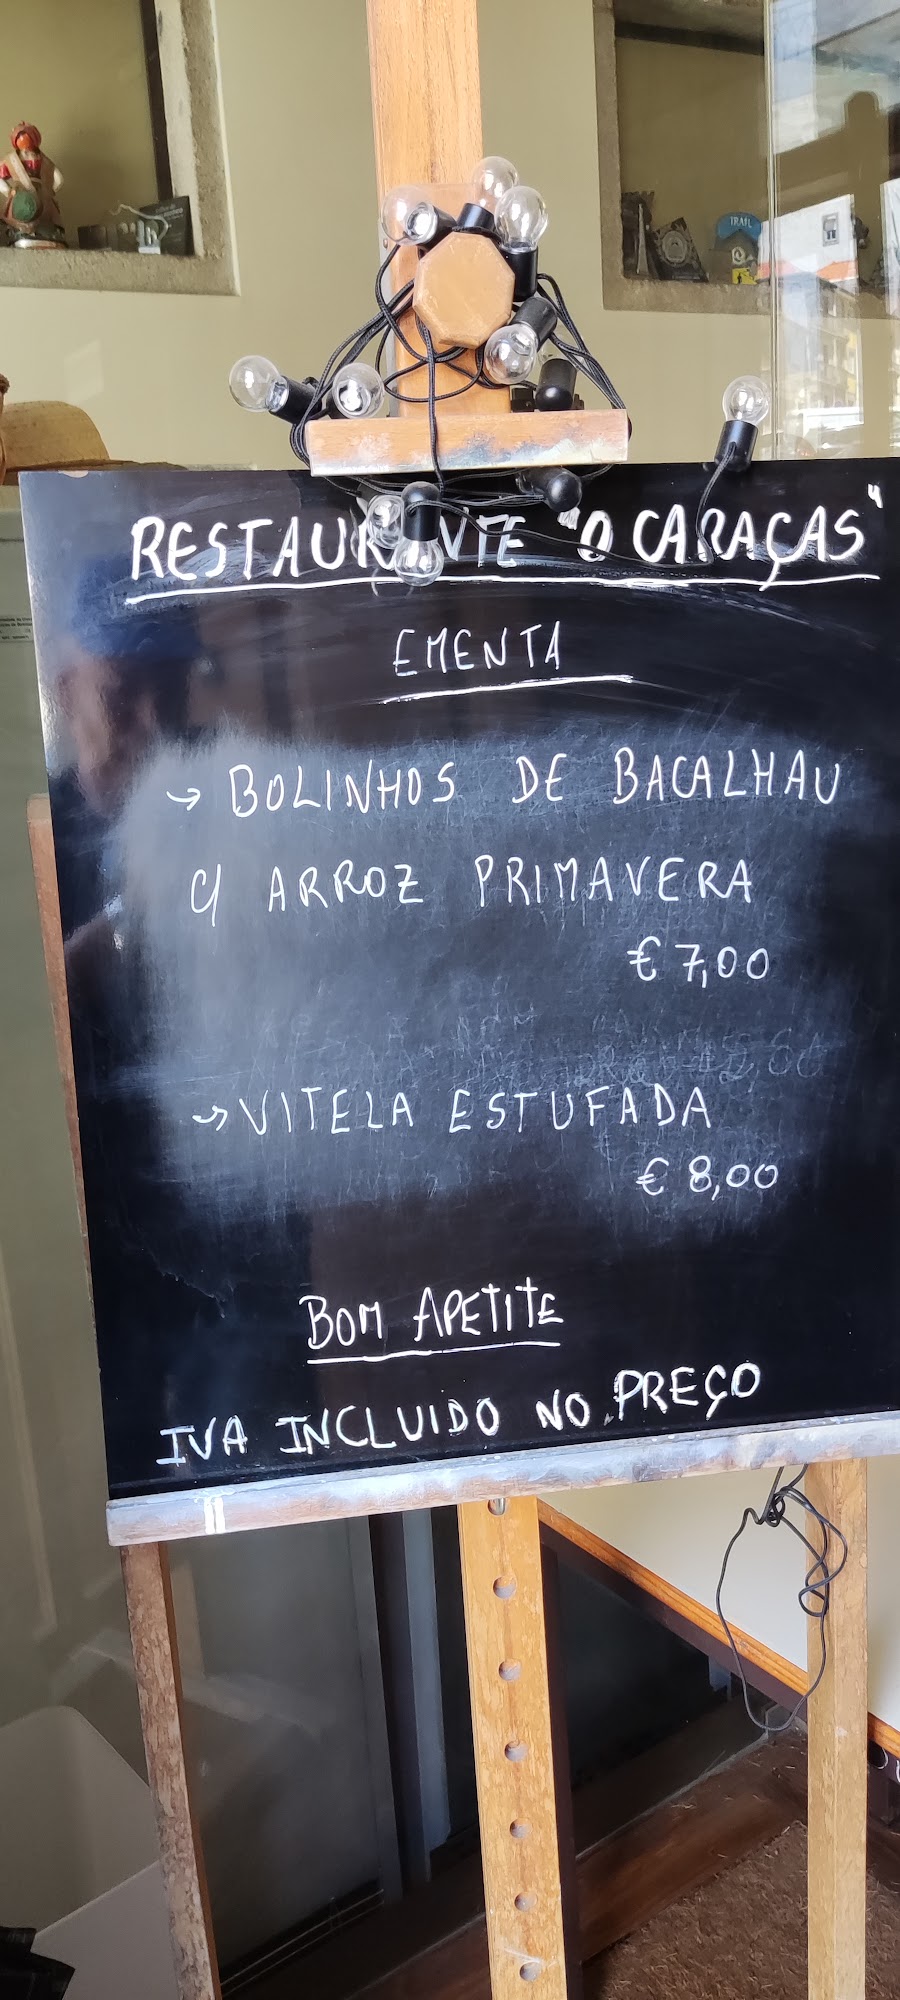 RESTAURANTE "O CARAÇAS"
EMENTA
→ BOLINHOS DE BACALHAU
C/ ARROZ PRIMAVERA
€ 7,00
→ VITELA ESTUFADA
€ 8,00
BOM APETITE
IVA INCLUIDO NO PREÇO
TRAIL